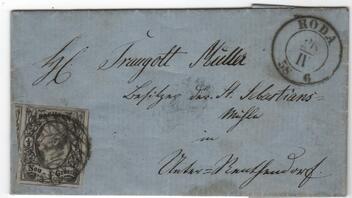 RODA
28
IV
58 6
H. Traugott Müller
Besitzer der St. Sebastians-
Mühle
in
Unter-Renthendorf.